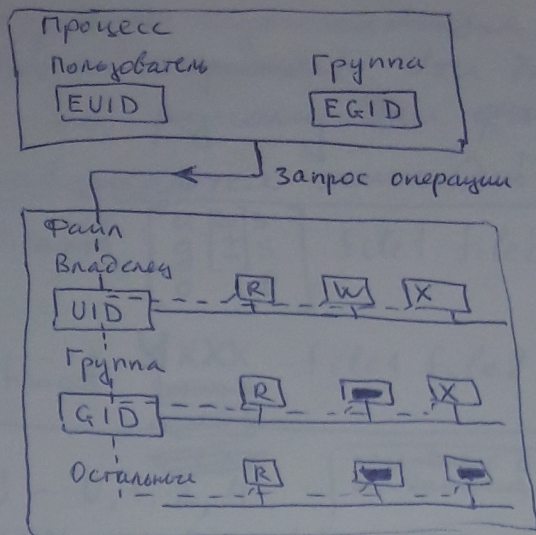 Процесс
Пользователь Группа
EUID EGID
Запрос операции
Файл
Владелец
UID R W X
Группа
GID R X
Остальные R